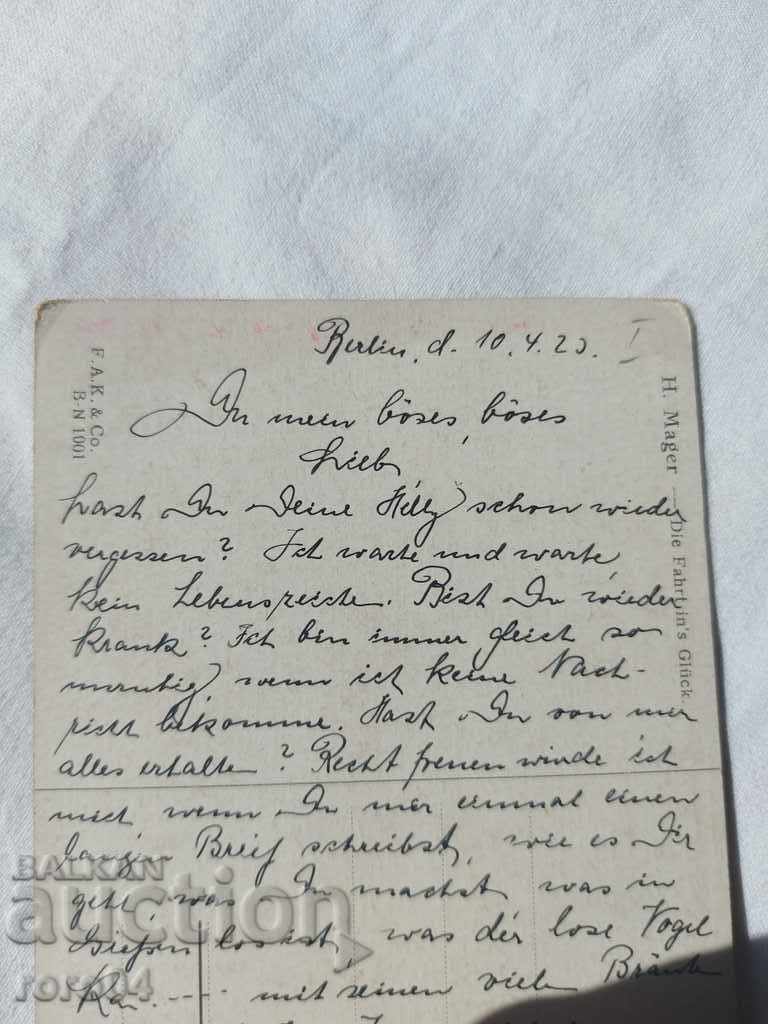 Berlin, d. 10.4.23. I
Du mein böses, böses
Lieb,
hast Du Deine schon wieder
vergessen? Ich warte und warte
kein Lebenszeichen. Bist Du wieder
krank? Ich bin immer gleich so
unruhig, wenn ich keine Nach-
richt bekomme. Hast Du von mir
alles erhalten? Recht freuen würde ich
mich wenn Du mir einmal einen
langen Brief schreibst, wie es Dir
geht, was Du machst, was in
Gießen los ist, was der lose Vogel
Ka..... mit seinen vielen Bräute
F.A.K. & Co.
B.N 1001
H. Mager — Die Fahrt in's Glück.
BALKAN
auction
ror